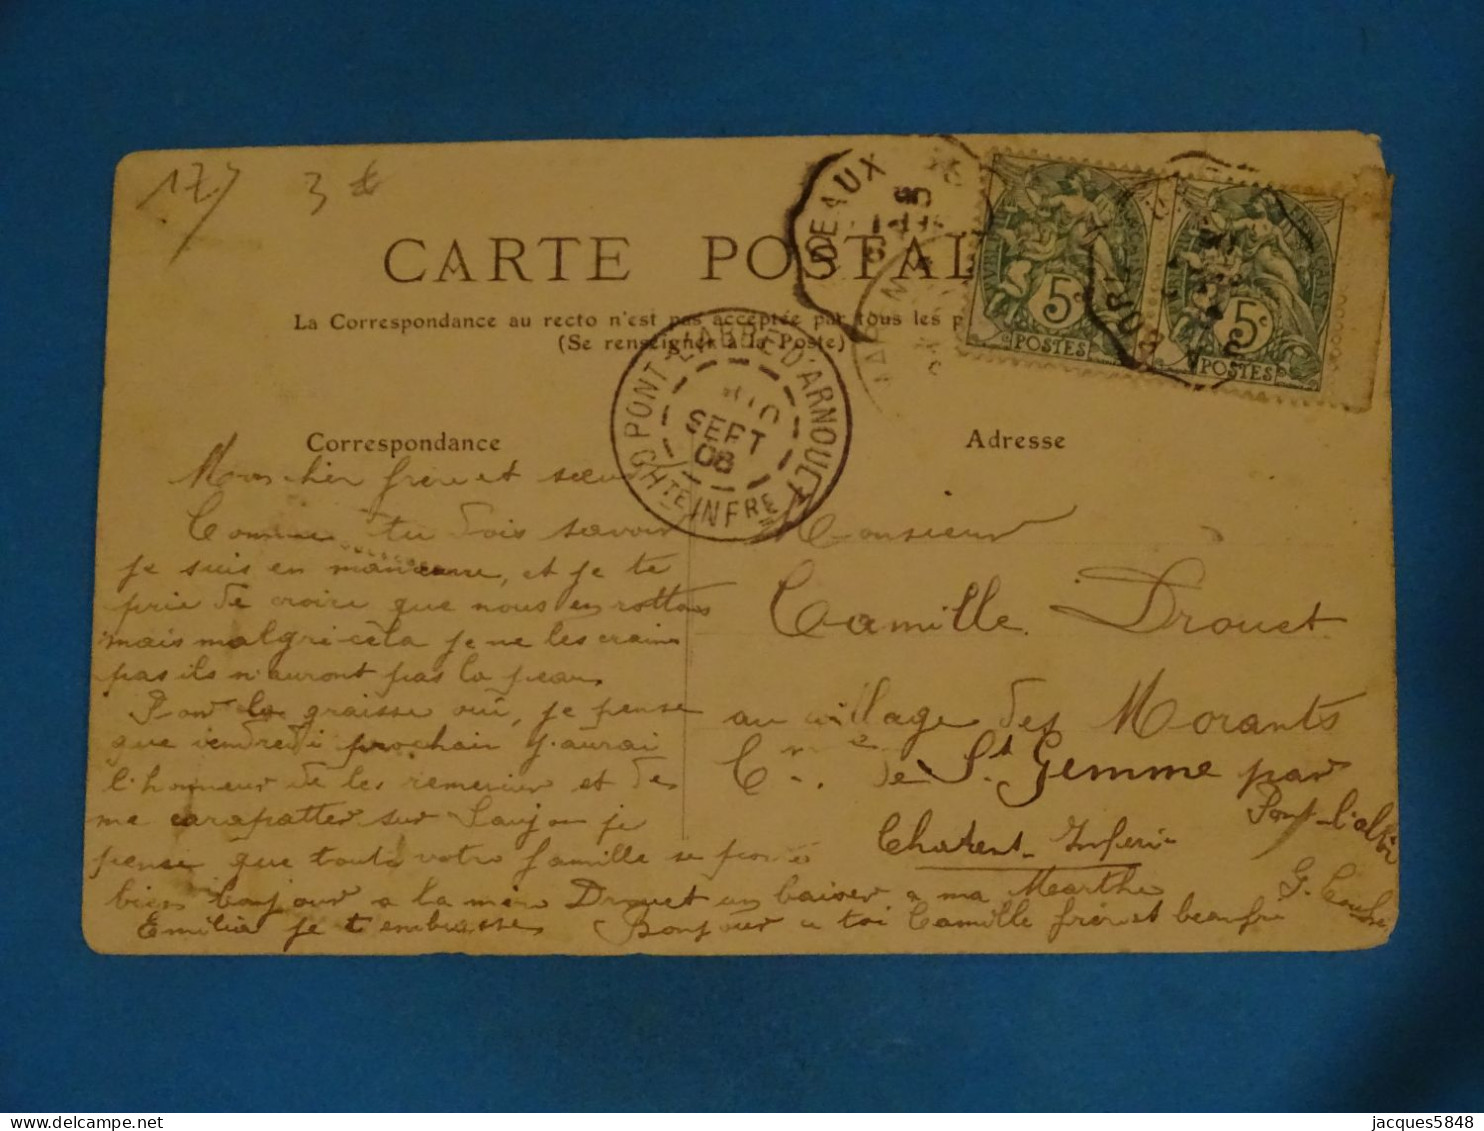 177 3
CARTE POSTAL
La Correspondance au recto n'est pas acceptée par tous les p
(Se renseigner à la Poste)
EAUX
08
5c
POSTES
5c
POSTES
PONT-L'ABBÉ-D'ARNOULT
10
SEPT
08
CHTE INFRE
Correspondance
Adresse
Mon cher frère et sœur
Comme tu dois savoir
je suis en manœuvre, et je te
prie de croire que nous en rottons
mais malgri cela je ne les crains
pas ils n'auront pas la peau
Pour la graisse oui, je pense
que vendredi prochain j'aurai
l'honneur de les remercier et de
me carapatter sur Saujon je
pense que toute votre famille se porte
bien bonjour a la mère Drouet un baiser a ma Marthe
Emilia je t'embrasse Bonjour a toi Camille frère et beaufre
Monsieur
Camille Drouet
au village des Morants
Cne de St Gemme par
Pont-l'abbé
Charent Inferi
G.
jacques5848